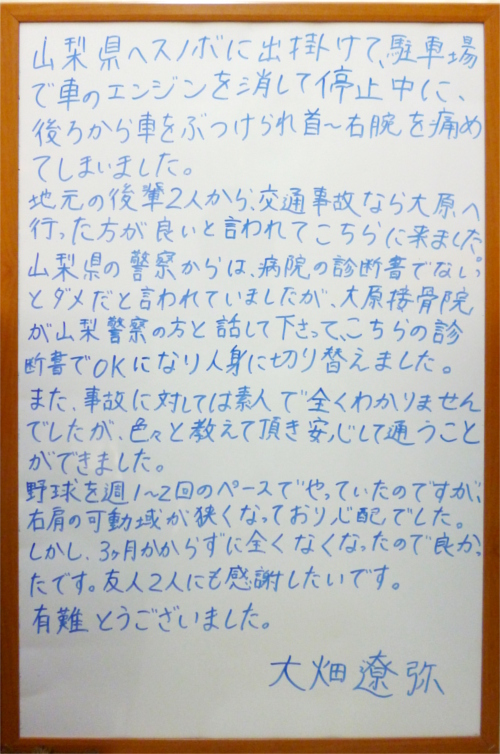 山梨県へスノボに出掛けて、駐車場
で車のエンジンを消して停止中に、
後ろから車をぶつけられ首〜右腕を痛め
てしまいました。
地元の後輩2人から、交通事故なら大原へ
行った方が良いと言われてこちらに来ました。
山梨県の警察からは、病院の診断書でないっ
とダメだと言われていましたが、大原接骨院
が山梨警察の方と話して下さって、こちらの診
断書でOKになり人身に切り替えました。
また、事故に対しては素人で全くわかりません
でしたが、色々と教えて頂き安心して通うこと
ができました。
野球を週1〜2回のペースでやっていたのですが、
右肩の可動域が狭くなっており心配でした。
しかし、3ヶ月かからずに全くなくなったので良かっ
たです。友人2人にも感謝したいです。
有難とうございました。
大畑遼弥